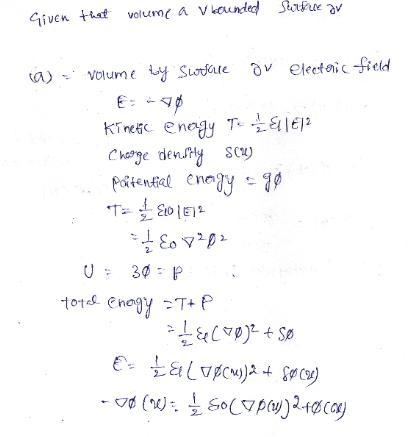 Given that volume a V bounded Surface ∂v
(a) = volume by Surface ∂v electric field
E = -∇φ
Kinetic energy T = 1/2 ε|E|2
Charge density S(x)
potential energy = gφ
T = 1/2 ε0 |E|2
= 1/2 ε0 ∇2φ2
U = 3φ = P
total energy = T + P
= 1/2 ε(∇φ)2 + Sφ
E = 1/2 ε(∇φ(x))2 + Sφ(x)
-∇φ(x) = 1/2 ε0(∇φ(x))2+φ(x)